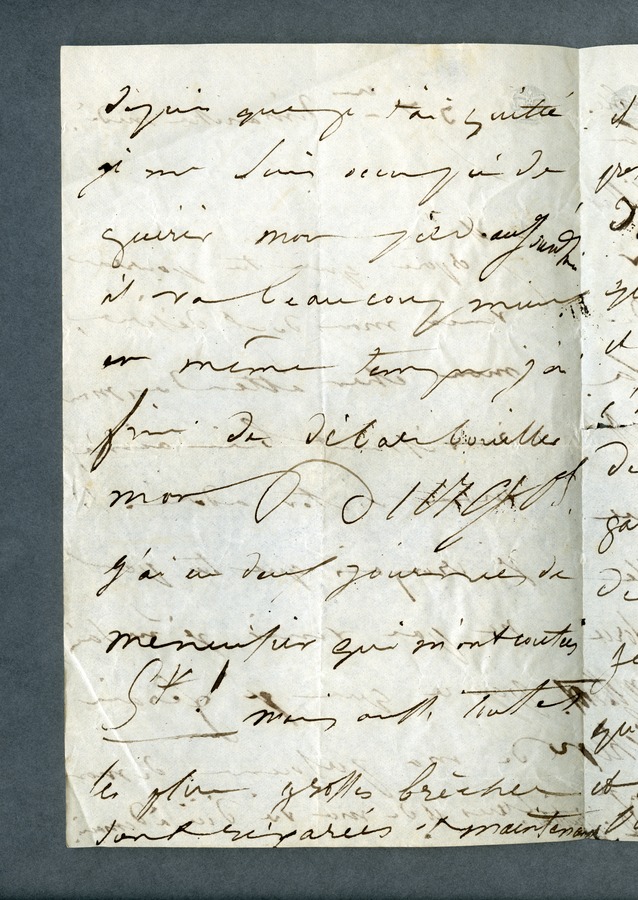 depuis que je t'ai quitté
je me suis occupé de
guérir mon pied aujourd'hui
il va beaucoup mieux
en même temps j'ai
fini de débarbouiller
mon
j'ai eu deux journées de
menuisier qui m'ont coutées
mais aussi toutes
les plus grosses brèches
sont réparées et maintenant